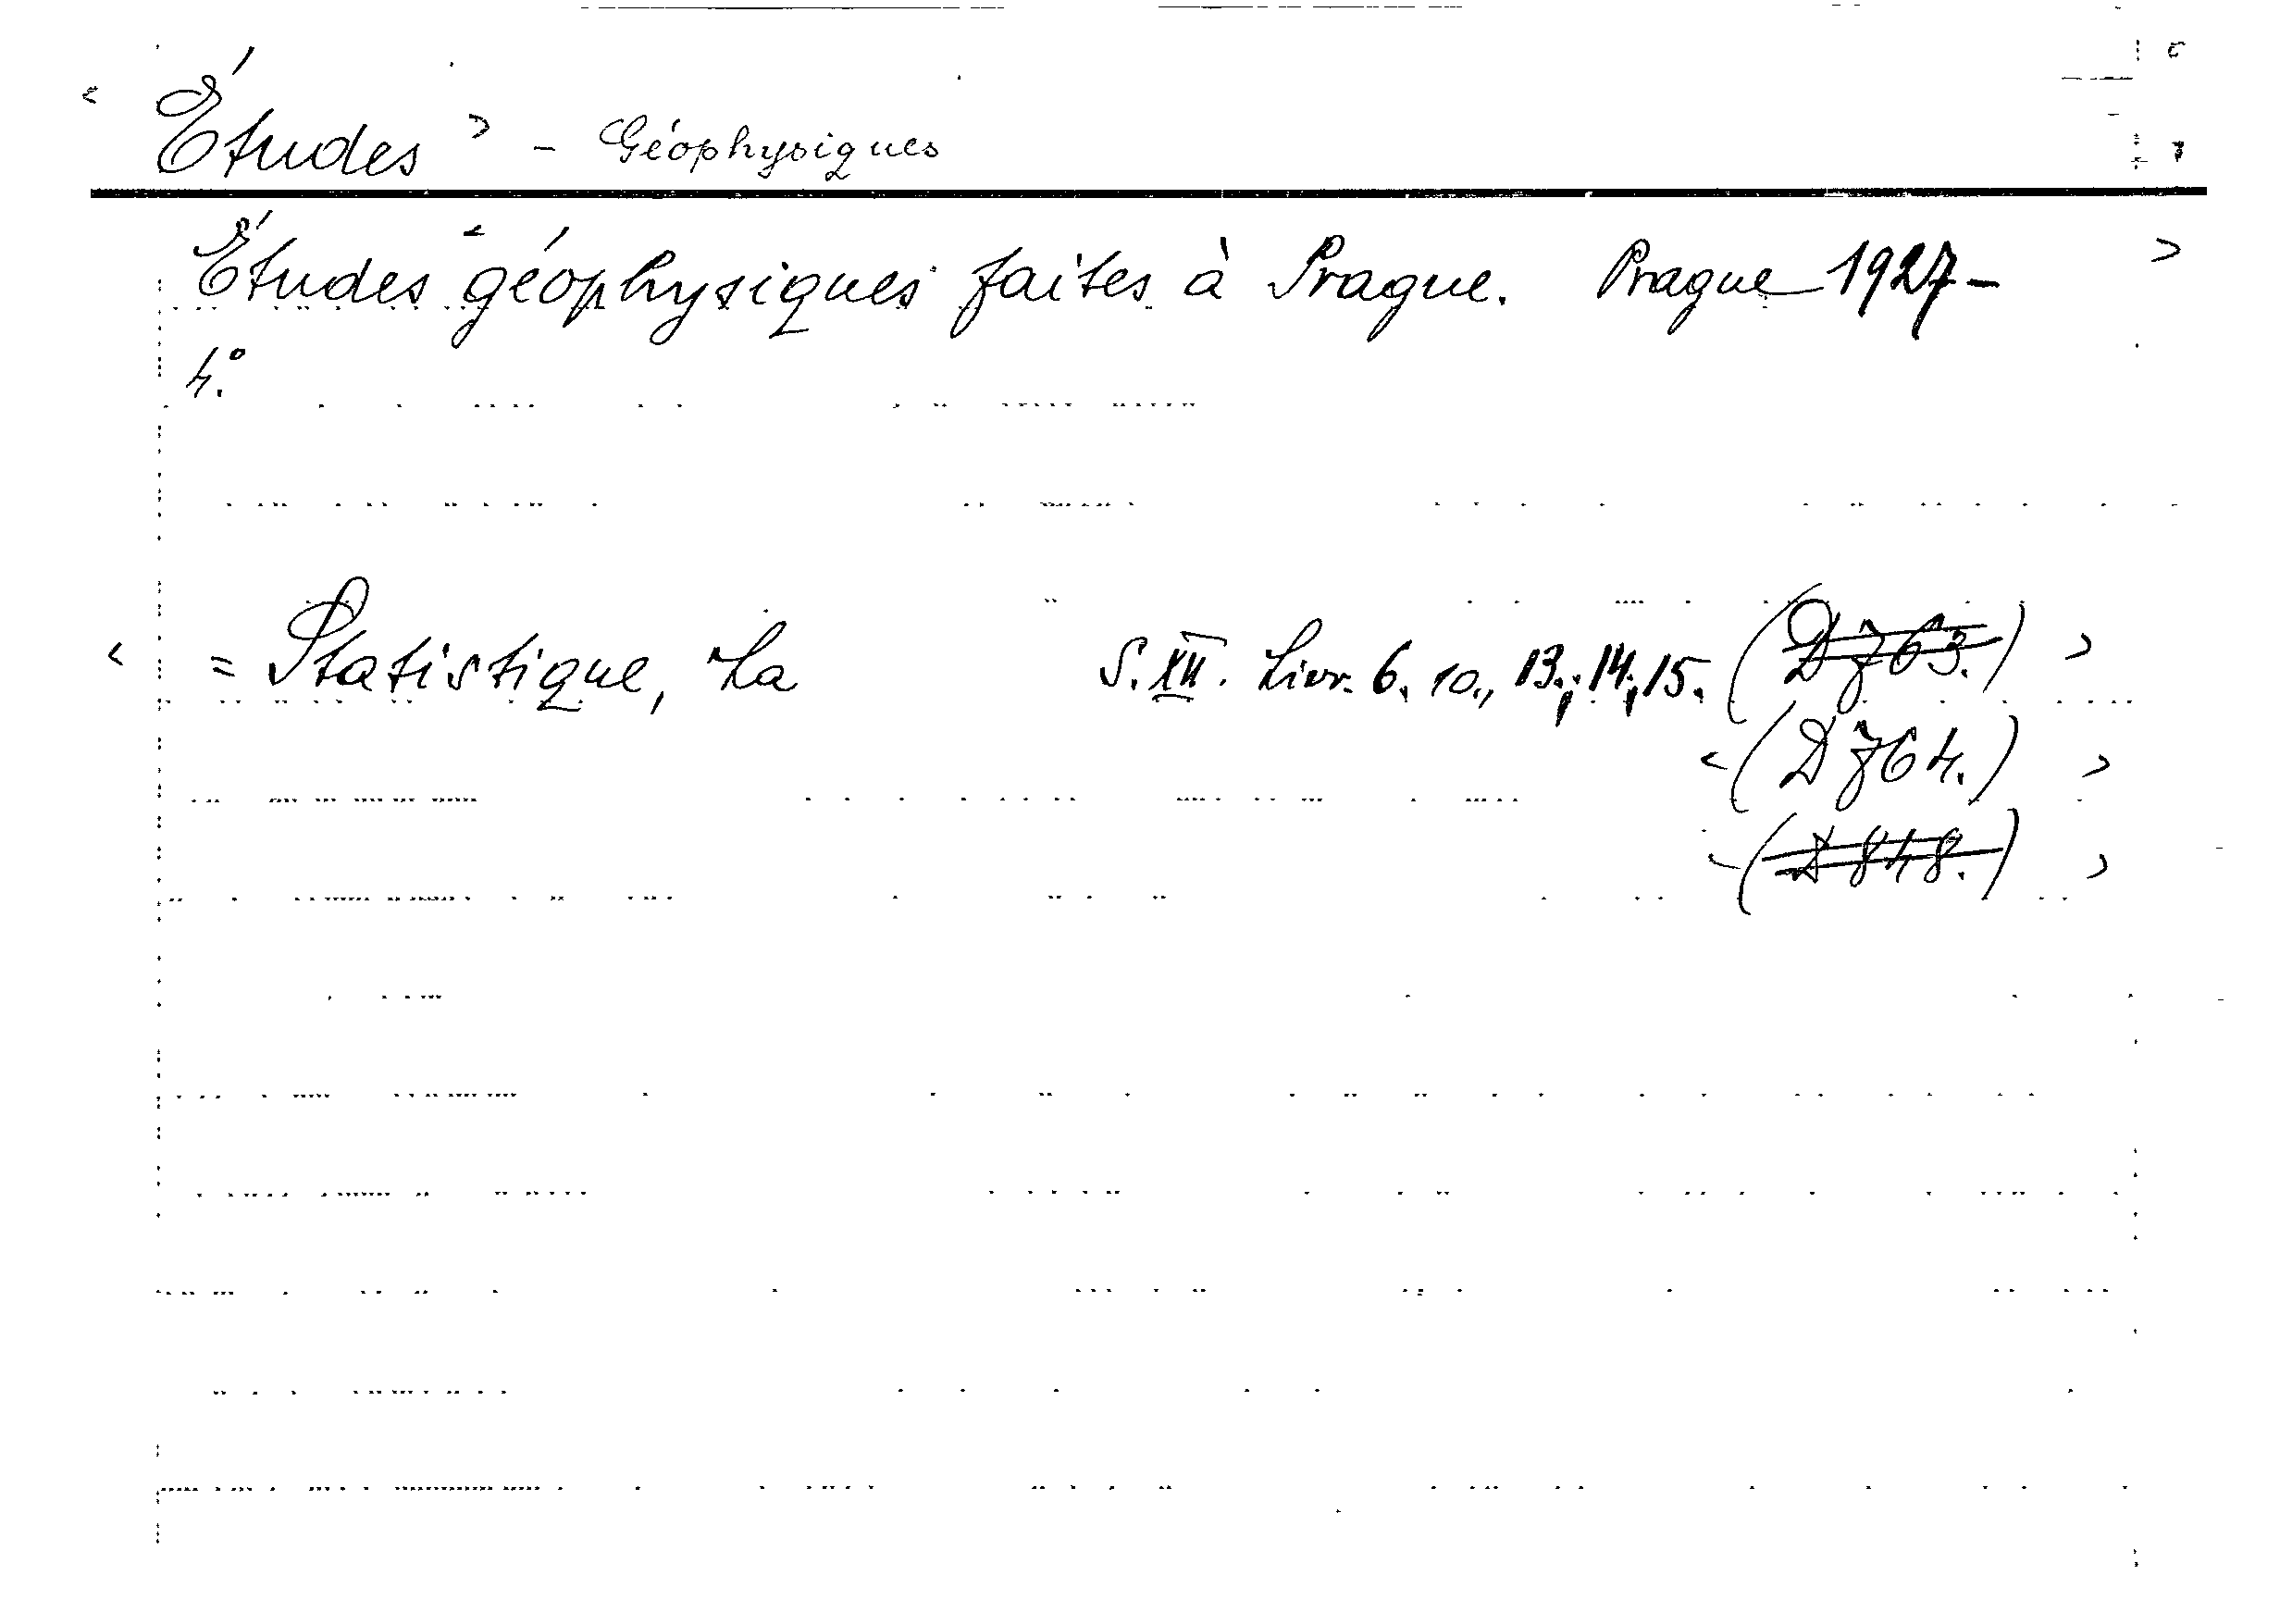 Études - Géophysiques
Études géophysiques faites à Prague. Prague 1927-
4.°
= Statistique, La S. XII. Livr. 6. 10., 13.; 14; 15. (D 763.)
(D 764.)
(D 848.)